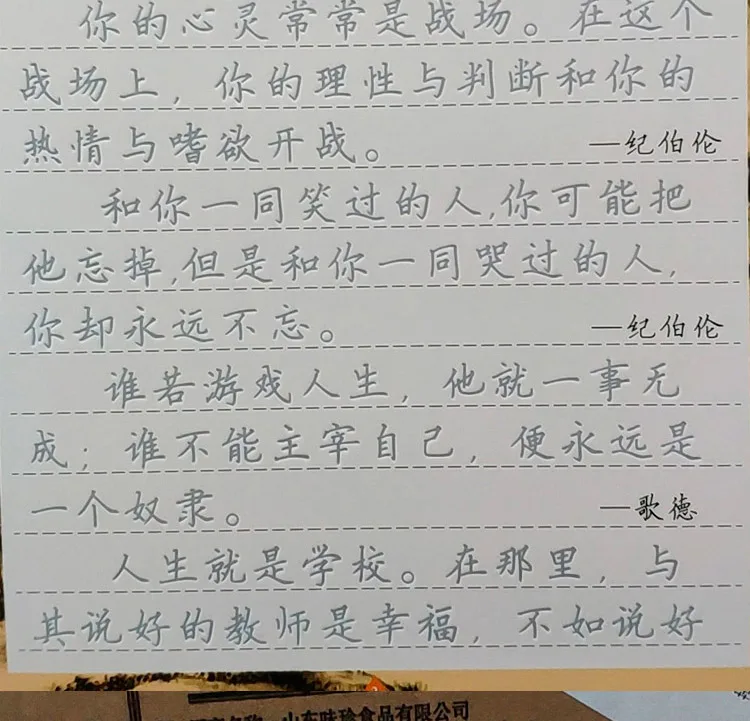 你的心灵常常是战场。在这个
战场上，你的理性与判断和你的
热情与嗜欲开战。 —纪伯伦
和你一同笑过的人,你可能把
他忘掉,但是和你一同哭过的人,
你却永远不忘。 —纪伯伦
谁若游戏人生，他就一事无
成；谁不能主宰自己，便永远是
一个奴隶。 —歌德
人生就是学校。在那里，与
其说好的教师是幸福，不如说好
山东味珍食品有限公司